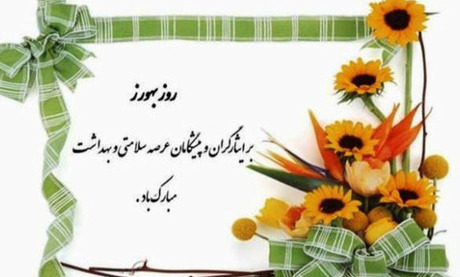 روز بهورز
بر ایثارگران و پیشگامان عرصه سلامتی و بهداشت
مبارک باد.